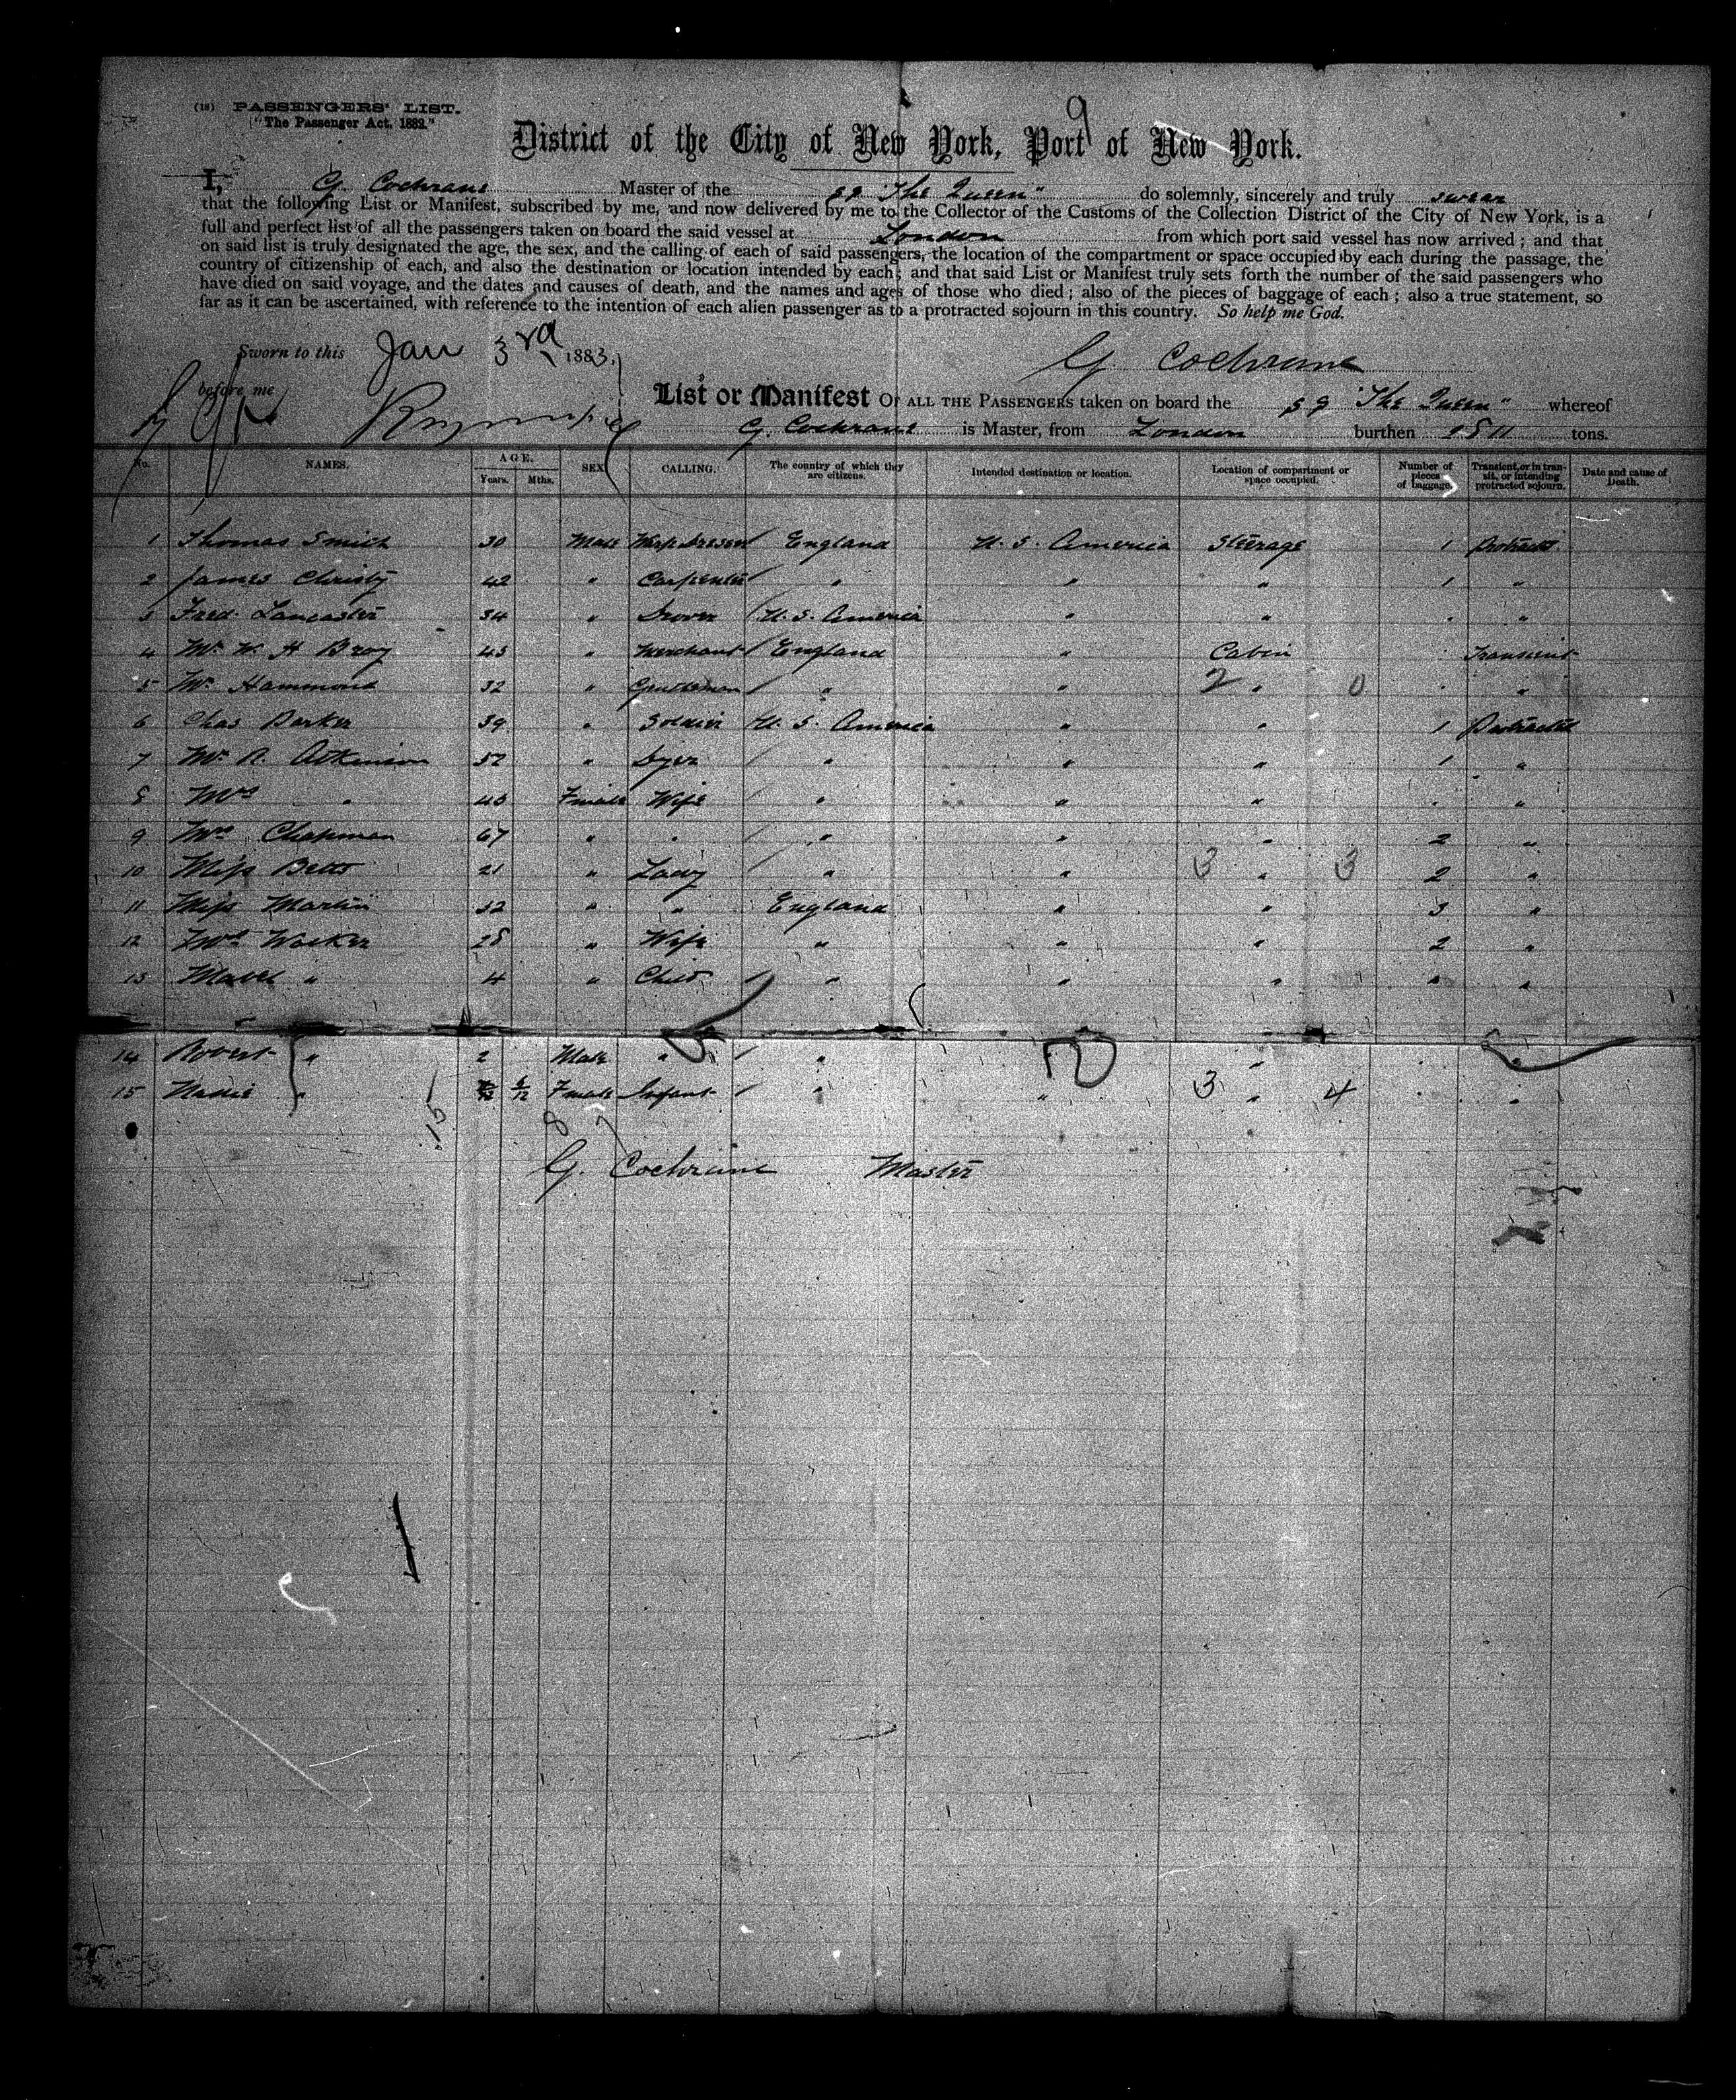 9
(18) PASSENGERS' LIST.
"The Passenger Act, 1882."
District of the City of New York, Port of New York.
I, G. Cochrane Master of the SS "The Queen" do solemnly, sincerely and truly swear
that the following List or Manifest, subscribed by me, and now delivered by me to the Collector of the Customs of the Collection District of the City of New York, is a
full and perfect list of all the passengers taken on board the said vessel at London from which port said vessel has now arrived; and that
on said list is truly designated the age, the sex, and the calling of each of said passengers, the location of the compartment or space occupied by each during the passage, the
country of citizenship of each, and also the destination or location intended by each; and that said List or Manifest truly sets forth the number of the said passengers who
have died on said voyage, and the dates and causes of death, and the names and ages of those who died; also of the pieces of baggage of each; also a true statement, so
far as it can be ascertained, with reference to the intention of each alien passenger as to a protracted sojourn in this country. So help me God.
Sworn to this Jan 3rd 1883.
G. Cochrane
before me
List or Manifest OF ALL THE PASSENGERS taken on board the SS "The Queen" whereof
G. Cochrane is Master, from London burthen tons.
No. NAMES. AGE. Years. Mths. SEX CALLING. The country of which they are citizens. Intended destination or location. Location of compartment or space occupied. Number of pieces of baggage. Transient, or in transit, or intending protracted sojourn. Date and cause of Death.
1 Thomas Smith 30 Male England U. S. America Steerage 1 Protracted
2 James Christy 42 " Carpenter " " " 1 "
3 Fred. Lancaster 34 " Drover U. S. America " " "
4 Mr. W. H Bray 45 " Merchant England " Cabin Transient
5 Mr. Hammond 32 " Gentleman " " 2 " 0 "
6 Chas Barker 39 " Soldier U. S. America " " 1 Protracted
7 Mr. R. Atkinson 52 " Dyer " " " 1 "
8 Mrs " 40 Female Wife " " " "
9 Mrs Chapman 67 " " " " " 2 "
10 Miss Betts 21 " Lady " " 3 " 3 2 "
11 Miss Martin 32 " " England " " 3 "
12 Mrs Walker 28 " Wife " " " 2 "
13 Mabel " 4 " Child " " " " "
14 Robert " 2 Male " " " "
15 " 6/12 Female Infant " " 3 " 4 "
15 8 7
G. Cochrane Master